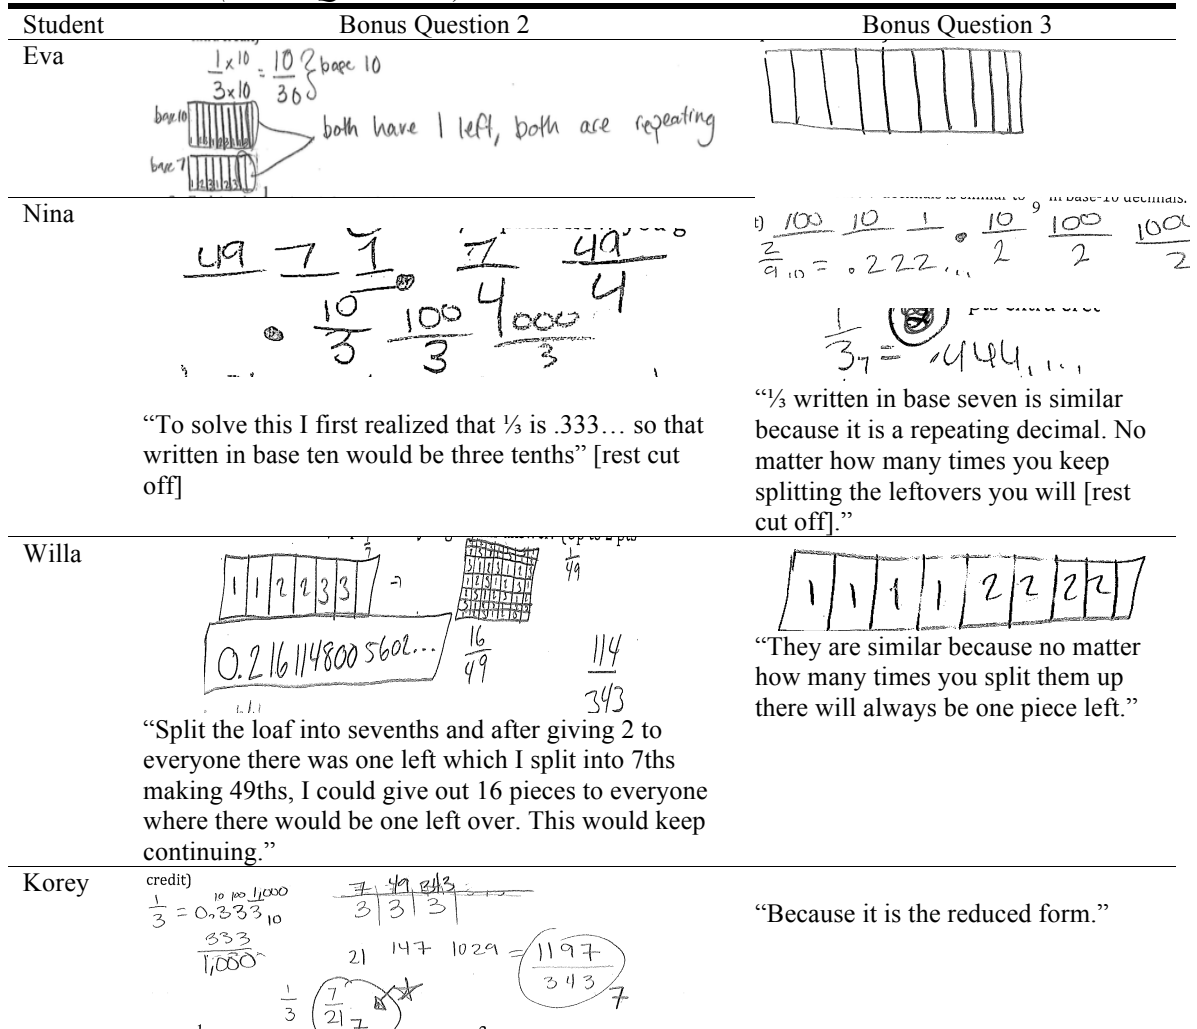 Student Bonus Question 2 Bonus Question 3
Eva
1/3 x10/x10 = 10/30 } base 10
base 10
both have 1 left, both are repeating
base 7
Nina
49 7 1 . 7/4 49/4
. 10/3 100/3 1000/3
“To solve this I first realized that ⅓ is .333… so that
written in base ten would be three tenths” [rest cut
off]
9 in base-10 decimals.
100 10 1 . 10/2 100/2
2/9 10 = .222...
1/3 7 = .444....
“⅓ written in base seven is similar
because it is a repeating decimal. No
matter how many times you keep
splitting the leftovers you will [rest
cut off].”
Willa
1 1 2 2 3 3
1/49
0.2161148005602...
16/49
114/343
“Split the loaf into sevenths and after giving 2 to
everyone there was one left which I split into 7ths
making 49ths, I could give out 16 pieces to everyone
where there would be one left over. This would keep
continuing.”
1 1 1 1 2 2 2 2
“They are similar because no matter
how many times you split them up
there will always be one piece left.”
Korey
credit)
10 100 1,000
1/3 = 0.333 10
333/1,000
7 49 343
3 3 3
21 147 1029 = 1197/343 7
1/3 7/21 7
“Because it is the reduced form.”